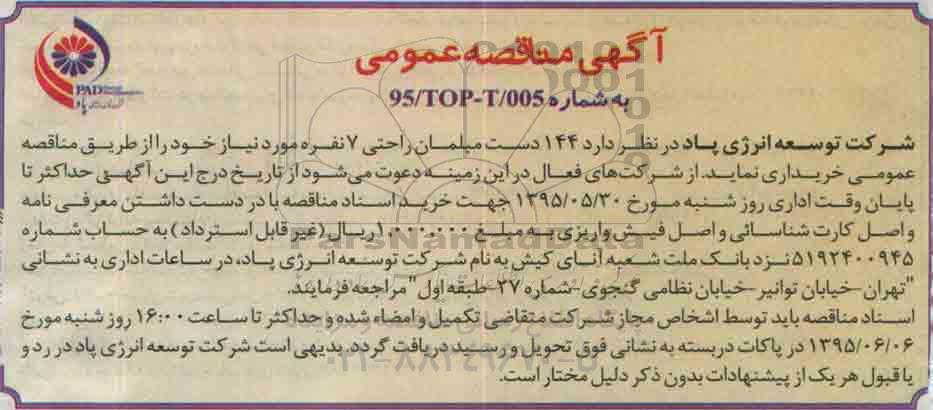 آگهی مناقصه عمومی
به شماره 95/TOP-T/005
PAD
شرکت توسعه انرژی پاد در نظر دارد ۱۴۴ دست مبلمان راحتی ۷ نفره مورد نیاز خود را از طریق مناقصه
عمومی خریداری نماید. از شرکت‌های فعال در این زمینه دعوت می‌شود از تاریخ درج این آگهی حداکثر تا
پایان وقت اداری روز شنبه مورخ ۱۳۹۵/۰۵/۳۰ جهت خرید اسناد مناقصه با در دست داشتن معرفی نامه
و اصل کارت شناسائی و اصل فیش واریزی به مبلغ ۱,۰۰۰,۰۰۰ ریال (غیر قابل استرداد) به حساب شماره
۵۱۹۲۴۰۰۹۴۵ نزد بانک ملت شعبه آنای کیش به نام شرکت توسعه انرژی پاد، در ساعات اداری به نشانی
"تهران -خیابان توانیر -خیابان نظامی گنجوی -شماره ۲۷ -طبقه اول" مراجعه فرمایند.
اسناد مناقصه باید توسط اشخاص مجاز شرکت متقاضی تکمیل و امضاء شده و حداکثر تا ساعت ۱۶:۰۰ روز شنبه مورخ
۱۳۹۵/۰۶/۰۶ در پاکات دربسته به نشانی فوق تحویل و رسید دریافت گردد. بدیهی است شرکت توسعه انرژی پاد در رد و
یا قبول هر یک از پیشنهادات بدون ذکر دلیل مختار است.
ParsNamadData